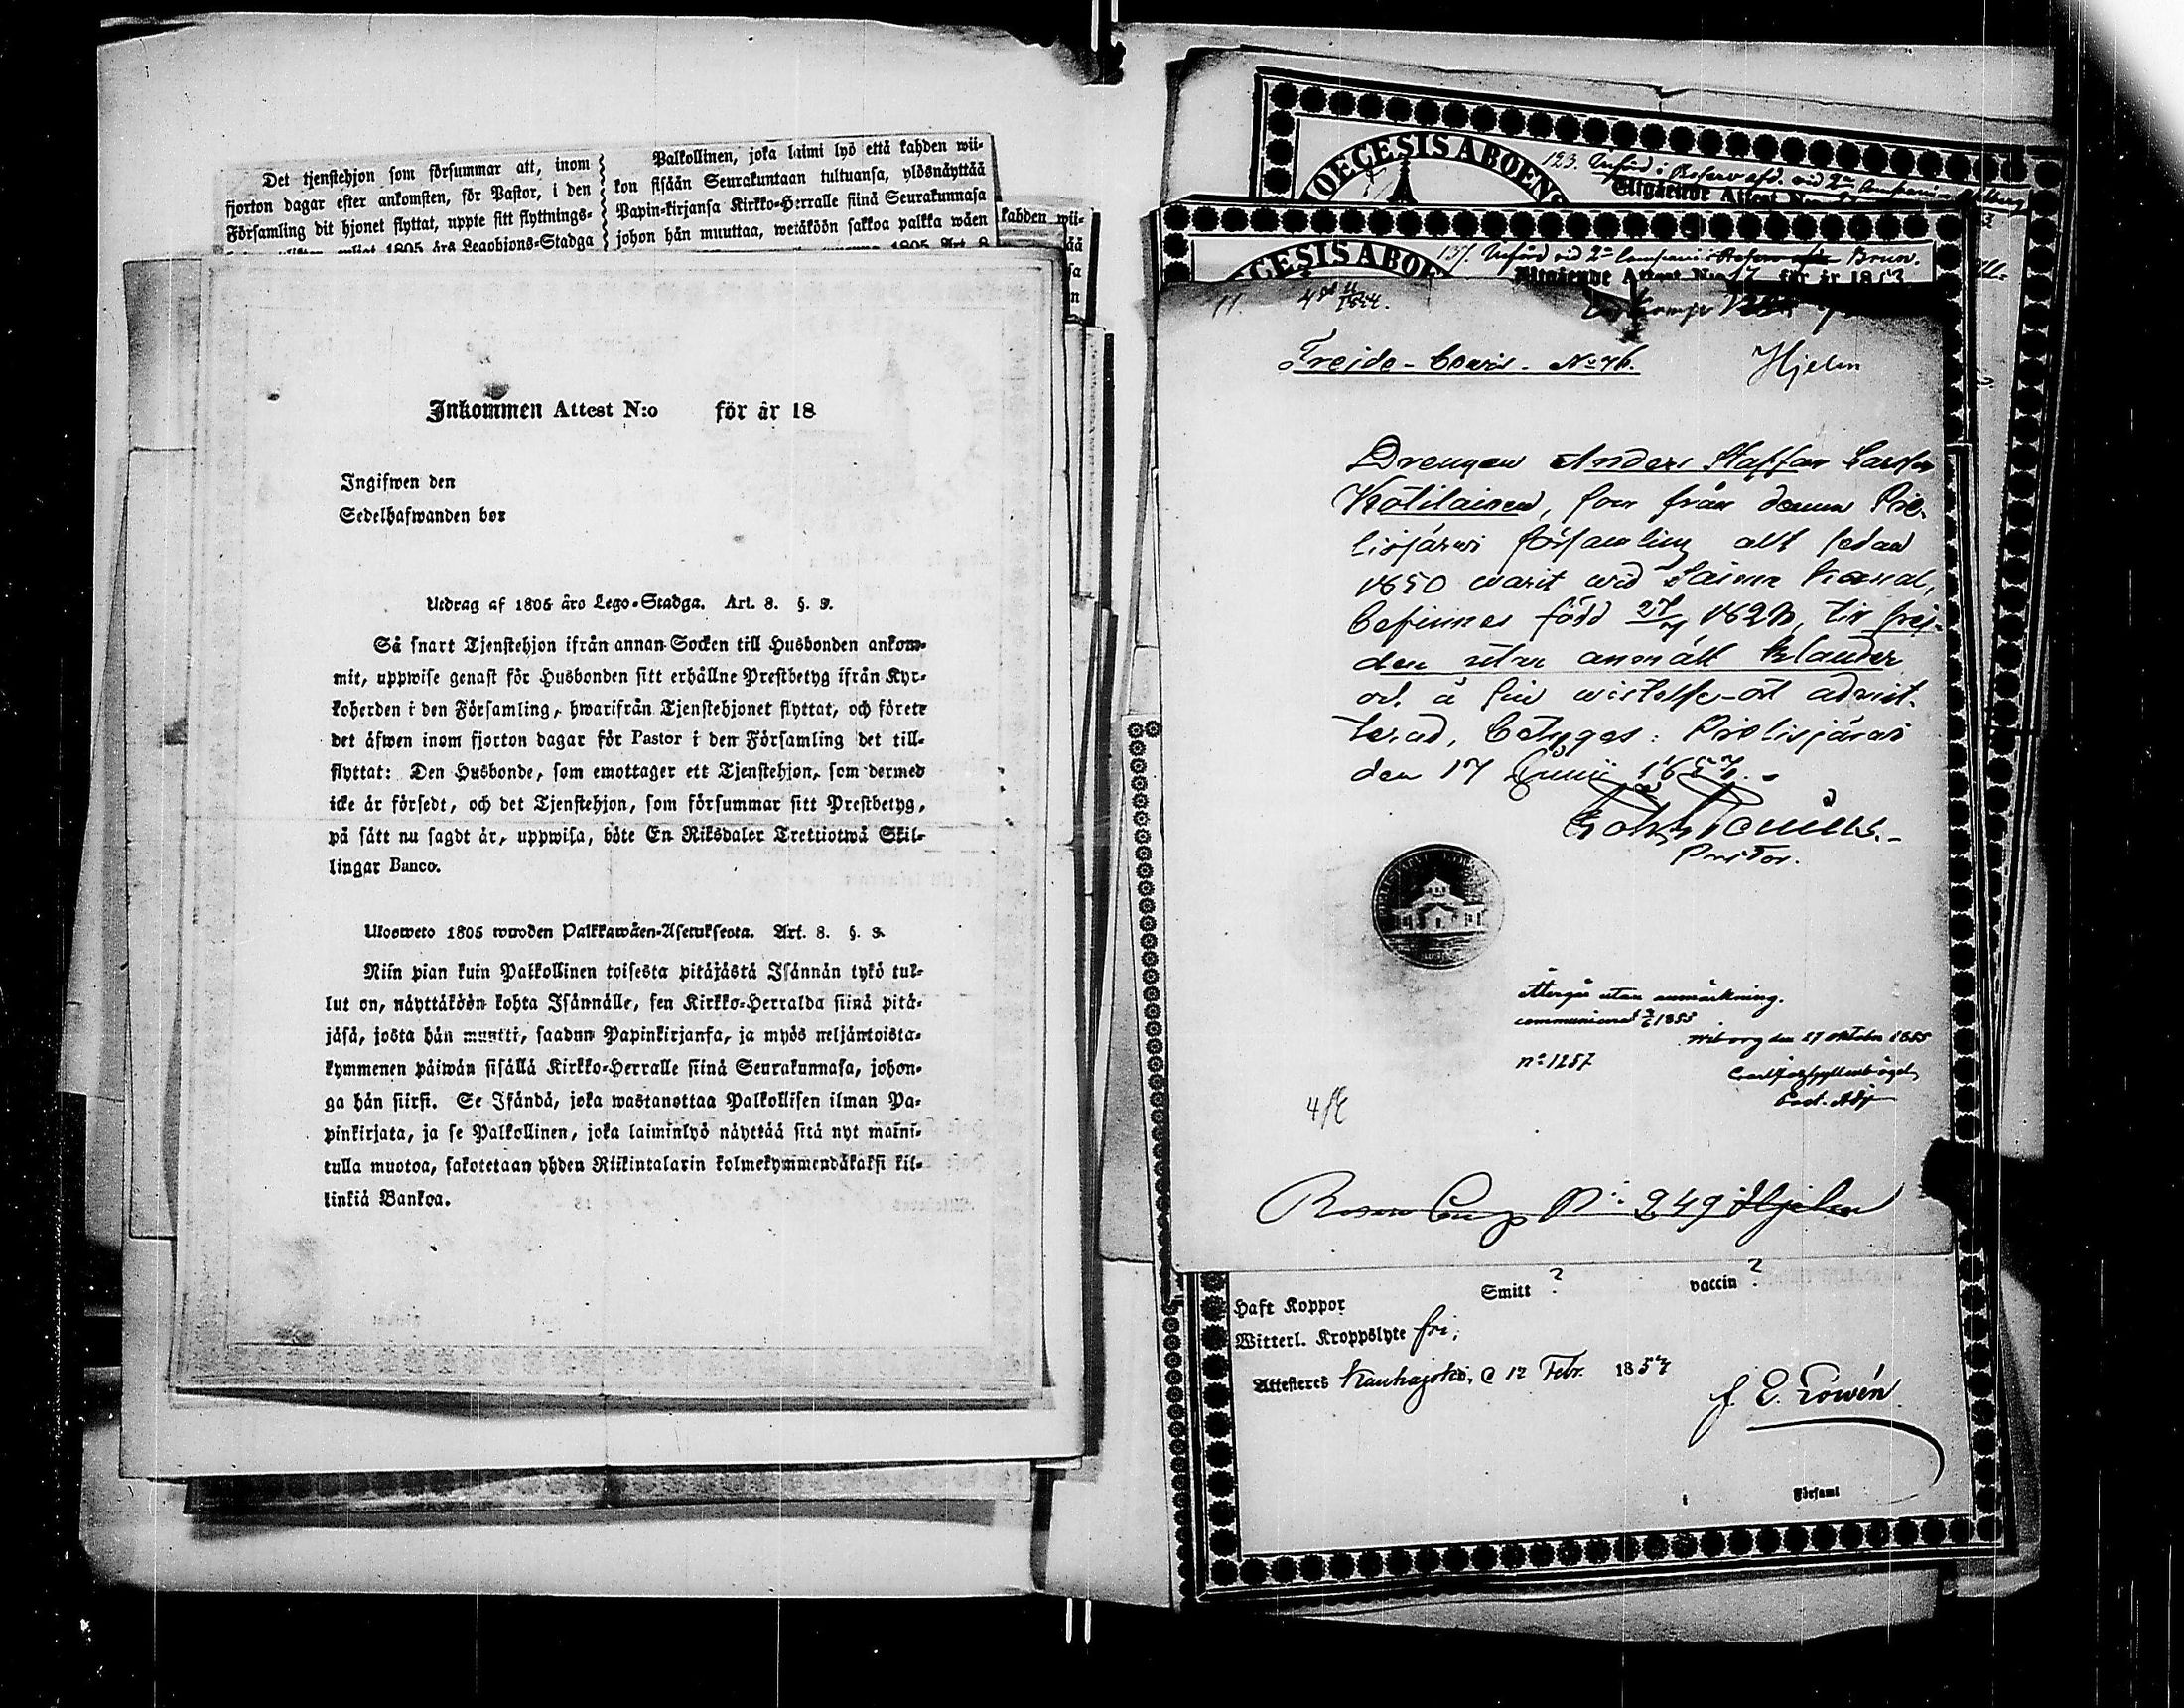 Det tjenstehjon som försummar att, inom
fjorton dagar efter ankomsten, för Pastor, i den
Församling dit hjonet flyttat, uppte sitt flyttnings-
1805 års Legohjons-Stadga
Palkollinen, joka laimi lyö että kahden wii-
kon sisään Seurakuntaan tultuansa, ylösnäyttää
Papin-kirjansa Kirkko-Herralle siinä Seurakunnasa
johon hän muuttaa, wetäköön sakkoa palkka wäen
1805 Art. 8
kahden wii-
Inkommen Attest N:o för år 18
Ingifwen den
Sedelhafwanden bor
Utdrag af 1805 års Lego-Stadga. Art. 8. §. 9.
Så snart Tjenstehjon ifrån annan Socken till Husbonden ankom-
mit, uppwise genast för Husbonden sitt erhållne Prestbetyg ifrån Kyr-
koherden i den Församling, hwarifrån Tjenstehjonet flyttat, och förete
det äfwen inom fjorton dagar för Pastor i den Församling det till-
flyttat: Den Husbonde, som emottager ett Tjenstehjon, som dermed
icke är försedt, och det Tjenstehjon, som försummar sitt Prestbetyg,
på sätt nu sagdt är, uppwisa, böte En Riksdaler Trettiotwå Skil-
lingar Banco.
Ulosweto 1805 wuoden Palkkawäen-Asetuksesta. Art. 8. §. 9.
Niin pian kuin Palkollinen toisesta pitäjästä Isännän tykö tul-
lut on, näyttäköön kohta Isännälle, sen Kirkko-Herralda siinä pitä-
jäsä, josta hän muutti, saadun Papinkirjansa, ja myös neljäntoista-
kymmenen päiwän sisällä Kirkko-Herralle siinä Seurakunnasa, johon-
ga hän siirsi. Se Isändä, joka wastanottaa Palkollisen ilman Pa-
pinkirjata, ja se Palkollinen, joka laiminlyö näyttää sitä nyt maini-
tulla muotoa, sakotetaan yhden Riikintalarin kolmekymmendäkaksi kil-
linkiä Bankoa.
OECESIS ABOENS
123. Införd i Reserv afd. vid 2n Compani
Utgående Attest N:o
CESIS ABOE
131. Införd vid 2n Compani Reserv Brun.
Utgående Attest N:o 17 för år 1853
11.
Frejde-Bevis. No 76. Hjelm
Drengen Anders Staffan Larsson
Kotilainen, som från denna Pie-
lisjärvi församling allt sedan
1850 varit vid Saima kanal,
befinnes född 27/7 1828, till frej-
den utan anmäldt klander
och å sin vistelse-ort admit-
terad, betygas: Pielisjärvi
den 17 Junii 1854.
Pastor.
Återgår utan anmärkning.
communicerad 3/6 1855
Wiborg den 27 oktober 1855
no 1257
Reserv Comp No 249 Hjelm
Haft Koppor Smitt ? vaccin ?
Witterl. Kroppslyte fri;
Attesteres Kauhajoki, d 12 Febr. 1854
f. E. Lowén
Församl